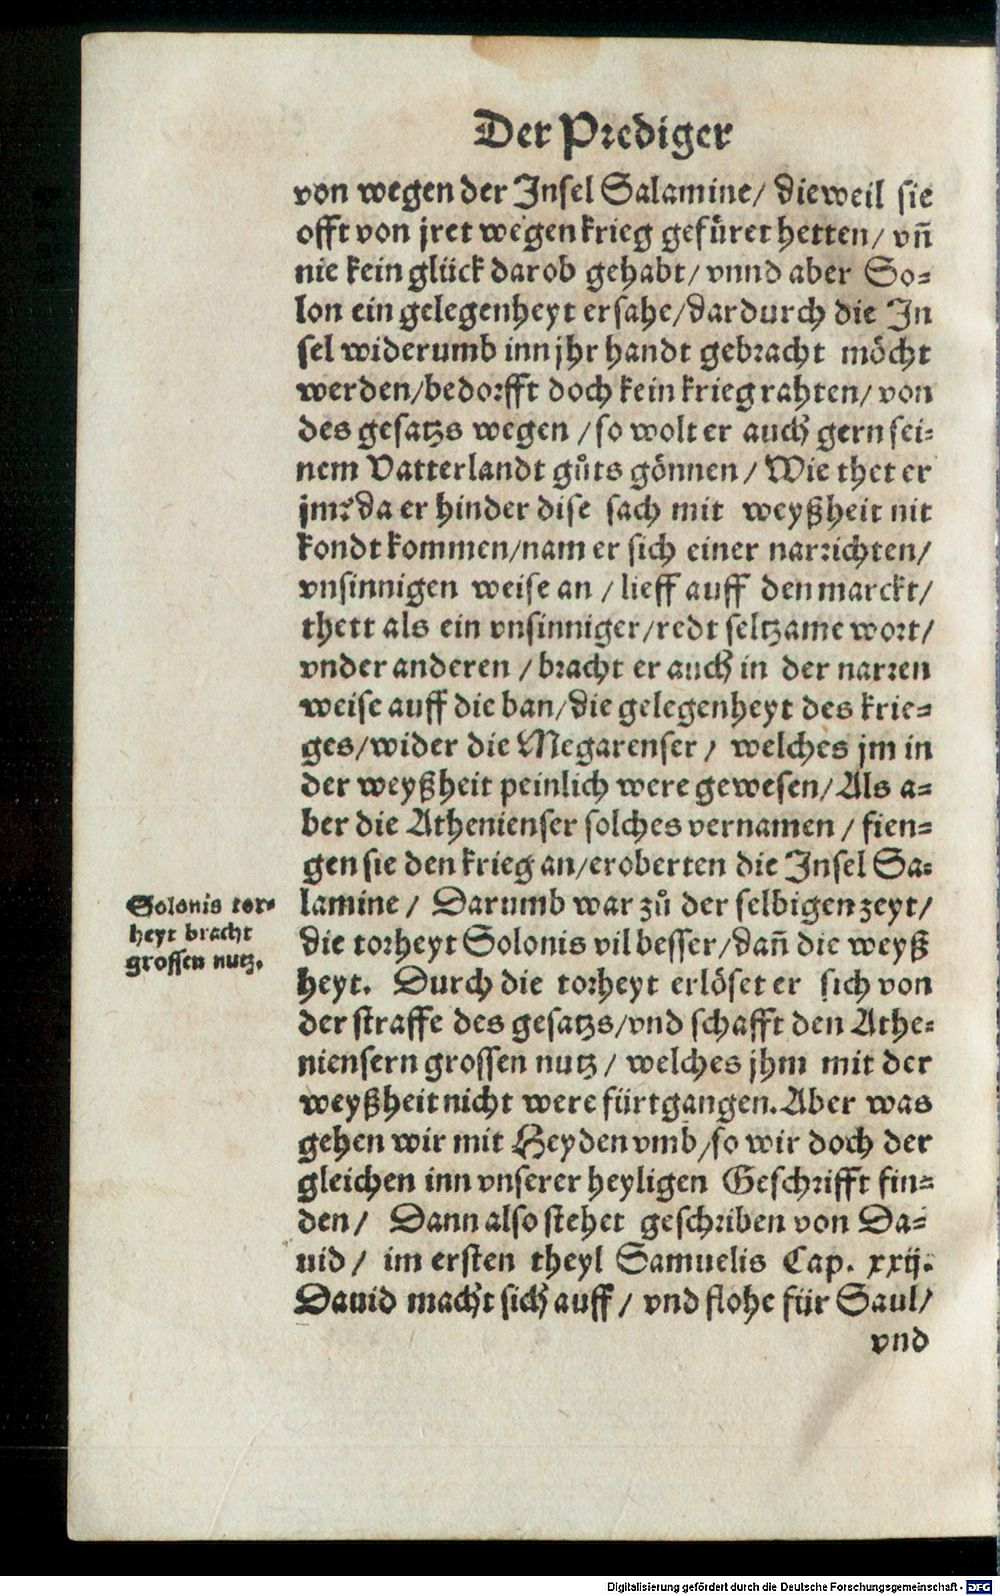 Der Prediger
von wegen der Insel Salamine/ dieweil sie
offt von jret wegen krieg gefüret hetten/ vnñ
nie kein glück darob gehabt/ vnnd aber So-
lon ein gelegenheyt ersahe/dardurch die In
sel widerumb inn jhr handt gebracht möcht
werden/bedorfft doch kein krieg rahten/ von
des gesatzs wegen /so wolt er auch gern sei-
nem Vatterlandt gůts gönnen/ Wie thet er
jm? da er hinder dise sach mit weyßheit nit
kondt kommen/nam er sich einer narrichten/
vnsinnigen weise an / lieff auff den marckt/
thett als ein vnsinniger/redt seltzame wort/
vnder anderen /bracht er auch in der narren
weise auff die ban/die gelegenheyt des krie-
ges/wider die Megarenser / welches jm in
der weyßheit peinlich were gewesen/ Als a-
ber die Athenienser solches vernamen / fien-
gen sie den krieg an/eroberten die Insel Sa-
lamine / Darumb war zů der selbigen zeyt/
die torheyt Solonis vil besser/dañ die weyß
heyt. Durch die torheyt erlöset er sich von
der straffe des gesatzs/vnd schafft den Athe-
niensern grossen nutz / welches jhm mit der
weyßheit nicht were fürtgangen. Aber was
gehen wir mit Heyden vmb/so wir doch der
gleichen inn vnserer heyligen Geschrifft fin-
den/ Dann also stehet geschriben von Da-
uid / im ersten theyl Samuelis Cap. xxij.
Dauid macht sich auff / vnd flohe für Saul/
vnd
Solonis tor-
heyt bracht
grossen nutz.
Digitalisierung gefördert durch die Deutsche Forschungsgemeinschaft - DFG